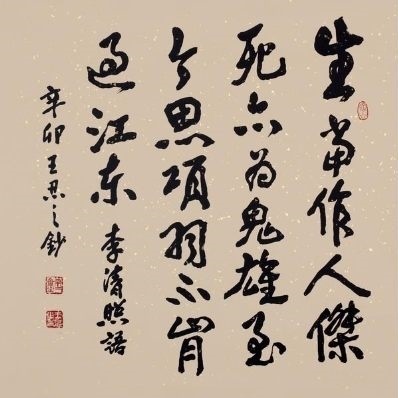 生當作人傑
死亦為鬼雄至
今思項羽不肯
過江東 李清照語
辛卯王忍之鈔